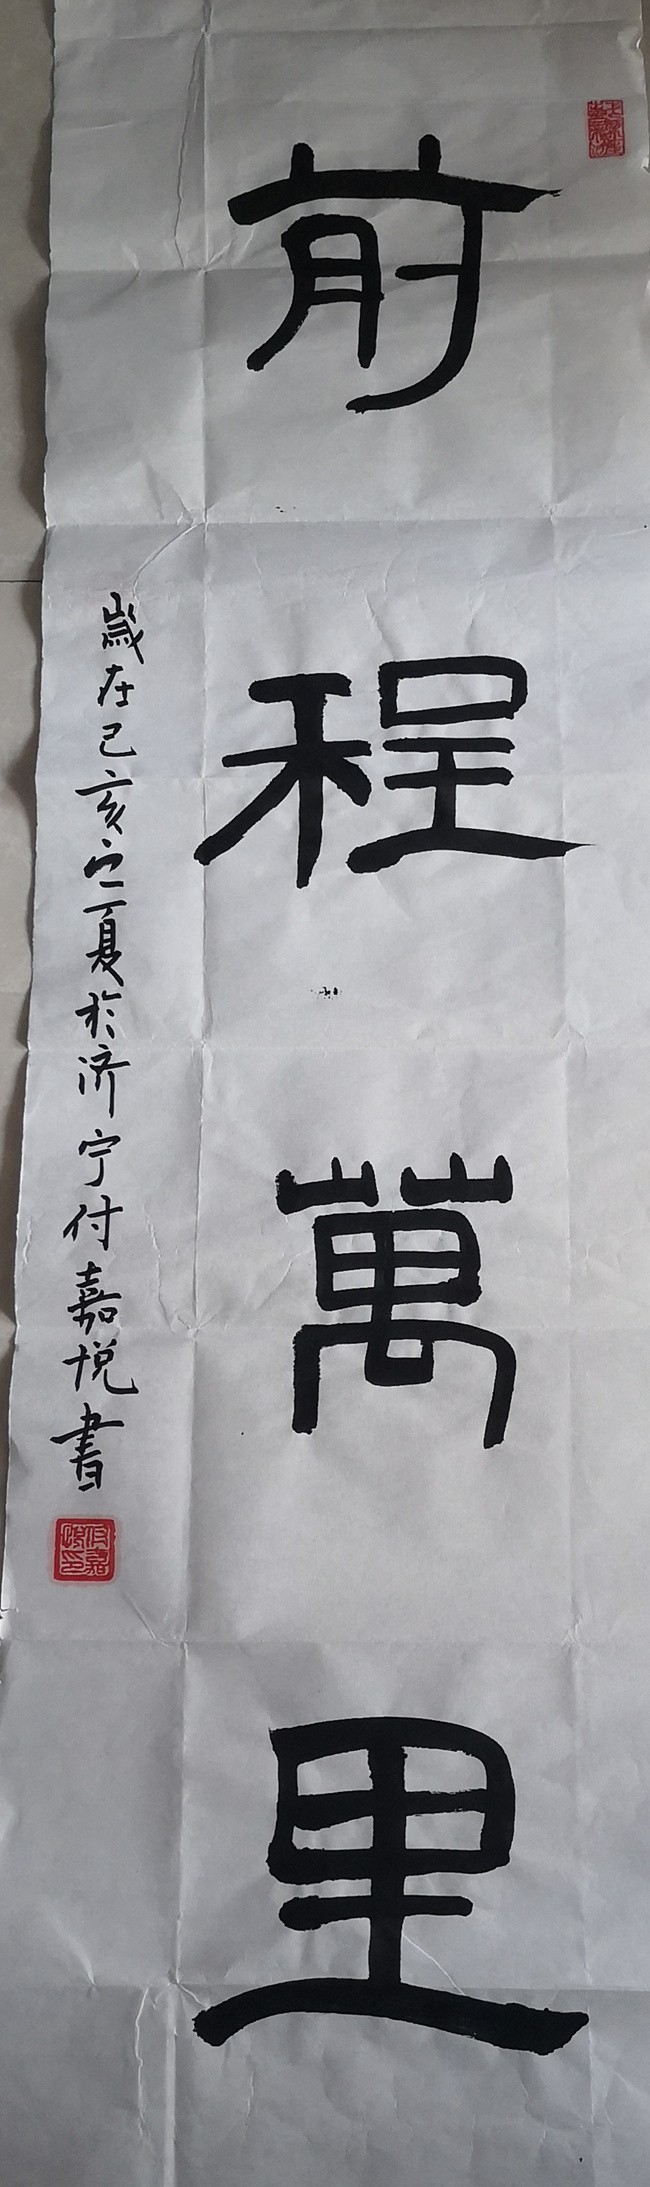 前程萬里
歲在己亥之夏於济宁付嘉悦書
付嘉悦印